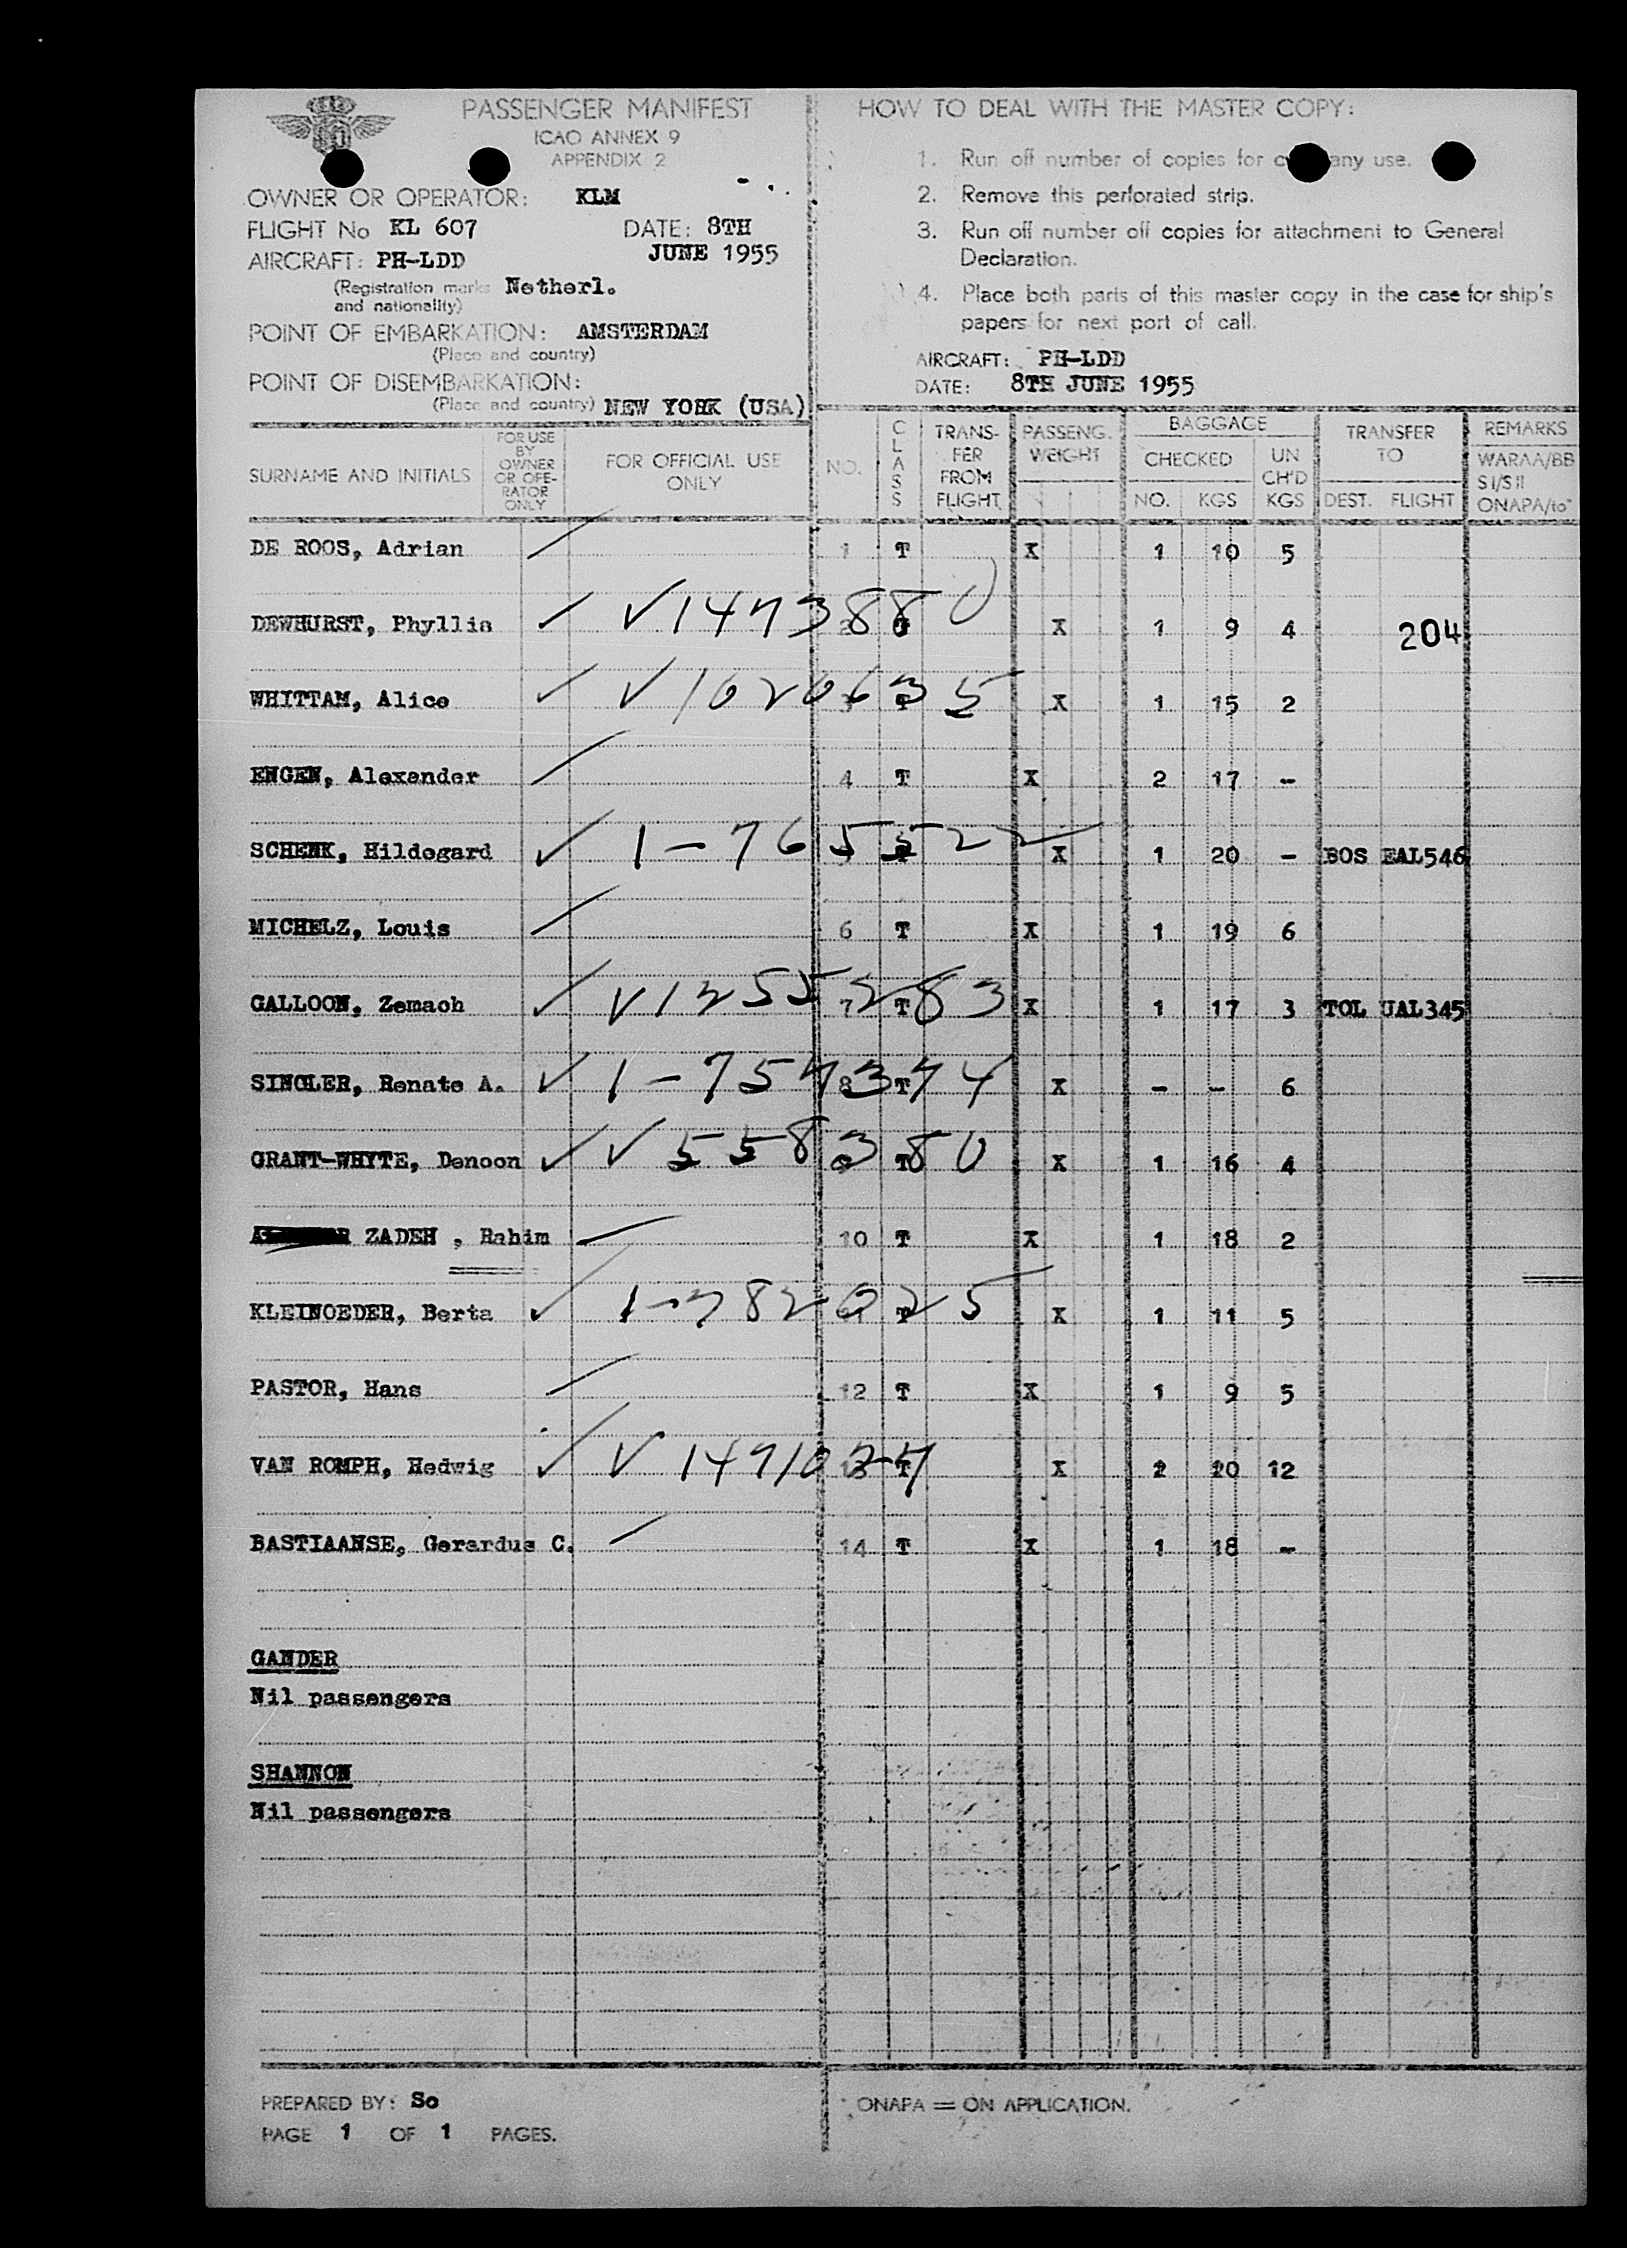 PASSENGER MANIFEST
ICAO ANNEX 9
APPENDIX 2
OWNER OR OPERATOR: KLM
FLIGHT No KL 607 DATE: 8TH
JUNE 1955
AIRCRAFT: PH-LDD
(Registration marks Netherl.
and nationality)
POINT OF EMBARKATION: AMSTERDAM
(Place and country)
POINT OF DISEMBARKATION:
(Place and country) NEW YORK (USA)
HOW TO DEAL WITH THE MASTER COPY:
1. Run off number of copies for any use.
2. Remove this perforated strip.
3. Run off number off copies for attachment to General
Declaration.
4. Place both parts of this master copy in the case for ship's
papers for next port of call.
AIRCRAFT: PH-LDD
DATE: 8TH JUNE 1955
SURNAME AND INITIALS
FOR USE
BY
OWNER
OR OPE-
RATOR
ONLY
FOR OFFICIAL USE
ONLY
NO.
CLASS
TRANS-
FER
FROM
FLIGHT
PASSENG.
WEIGHT
BAGGAGE
CHECKED
NO. KGS
UN
CH'D
KGS
TRANSFER
TO
DEST. FLIGHT
REMARKS
WARAA/BB
SI/SII
ONAPA/to
DE ROOS, Adrian 1 T X 1 10 5
DEWHURST, Phyllis ✓ ✓ 14473880 2 X 1 9 4 204
WHITTAM, Alice ✓ ✓ 10206335 3 T X 1 15 2
ENGEN, Alexander 4 T X 2 17 -
SCHENK, Hildegard ✓ 1-7655522 X 1 20 - BOS EAL546
MICHELZ, Louis 6 T X 1 19 6
GALLOON, Zemach ✓ ✓ 12555283 7 T X 1 17 3 TOL UAL345
SINGLER, Renate A. ✓ 1-7547374 8 T X - - 6
GRANT-WHYTE, Denoon ✓ ✓ 558380 T X 1 16 4
ZADEH, Rahim 10 T X 1 18 2
KLEINOEDER, Berta ✓ 1-7820025 T X 1 11 5
PASTOR, Hans 12 T X 1 9 5
VAN ROMPH, Hedwig ✓ ✓ 14910247 13 T X 2 20 12
BASTIAANSE, Gerardus C. 14 T X 1 18 -
GANDER
Nil passengers
SHANNON
Nil passengers
PREPARED BY: So
PAGE 1 OF 1 PAGES.
ONAPA = ON APPLICATION.